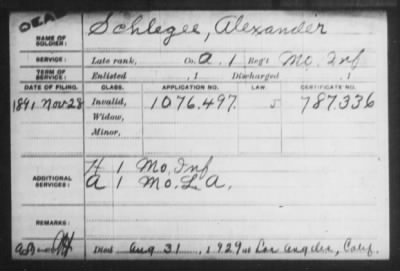 DEAD
NAME OF SOLDIER: Schlegel, Alexander
SERVICE: Late rank, Co. A. 1 Reg't Mo. Inf
TERM OF SERVICE: Enlisted , 1 Discharged , 1
DATE OF FILING. CLASS. APPLICATION NO. LAW. CERTIFICATE NO.
1891 Nov 28 Invalid, 1076.497 5 787.336
Widow,
Minor,
ADDITIONAL SERVICES: H 1 Mo. Inf
A 1 Mo. L. A.
REMARKS:
Died Aug 31, 1929 at Los Angeles, Calif.